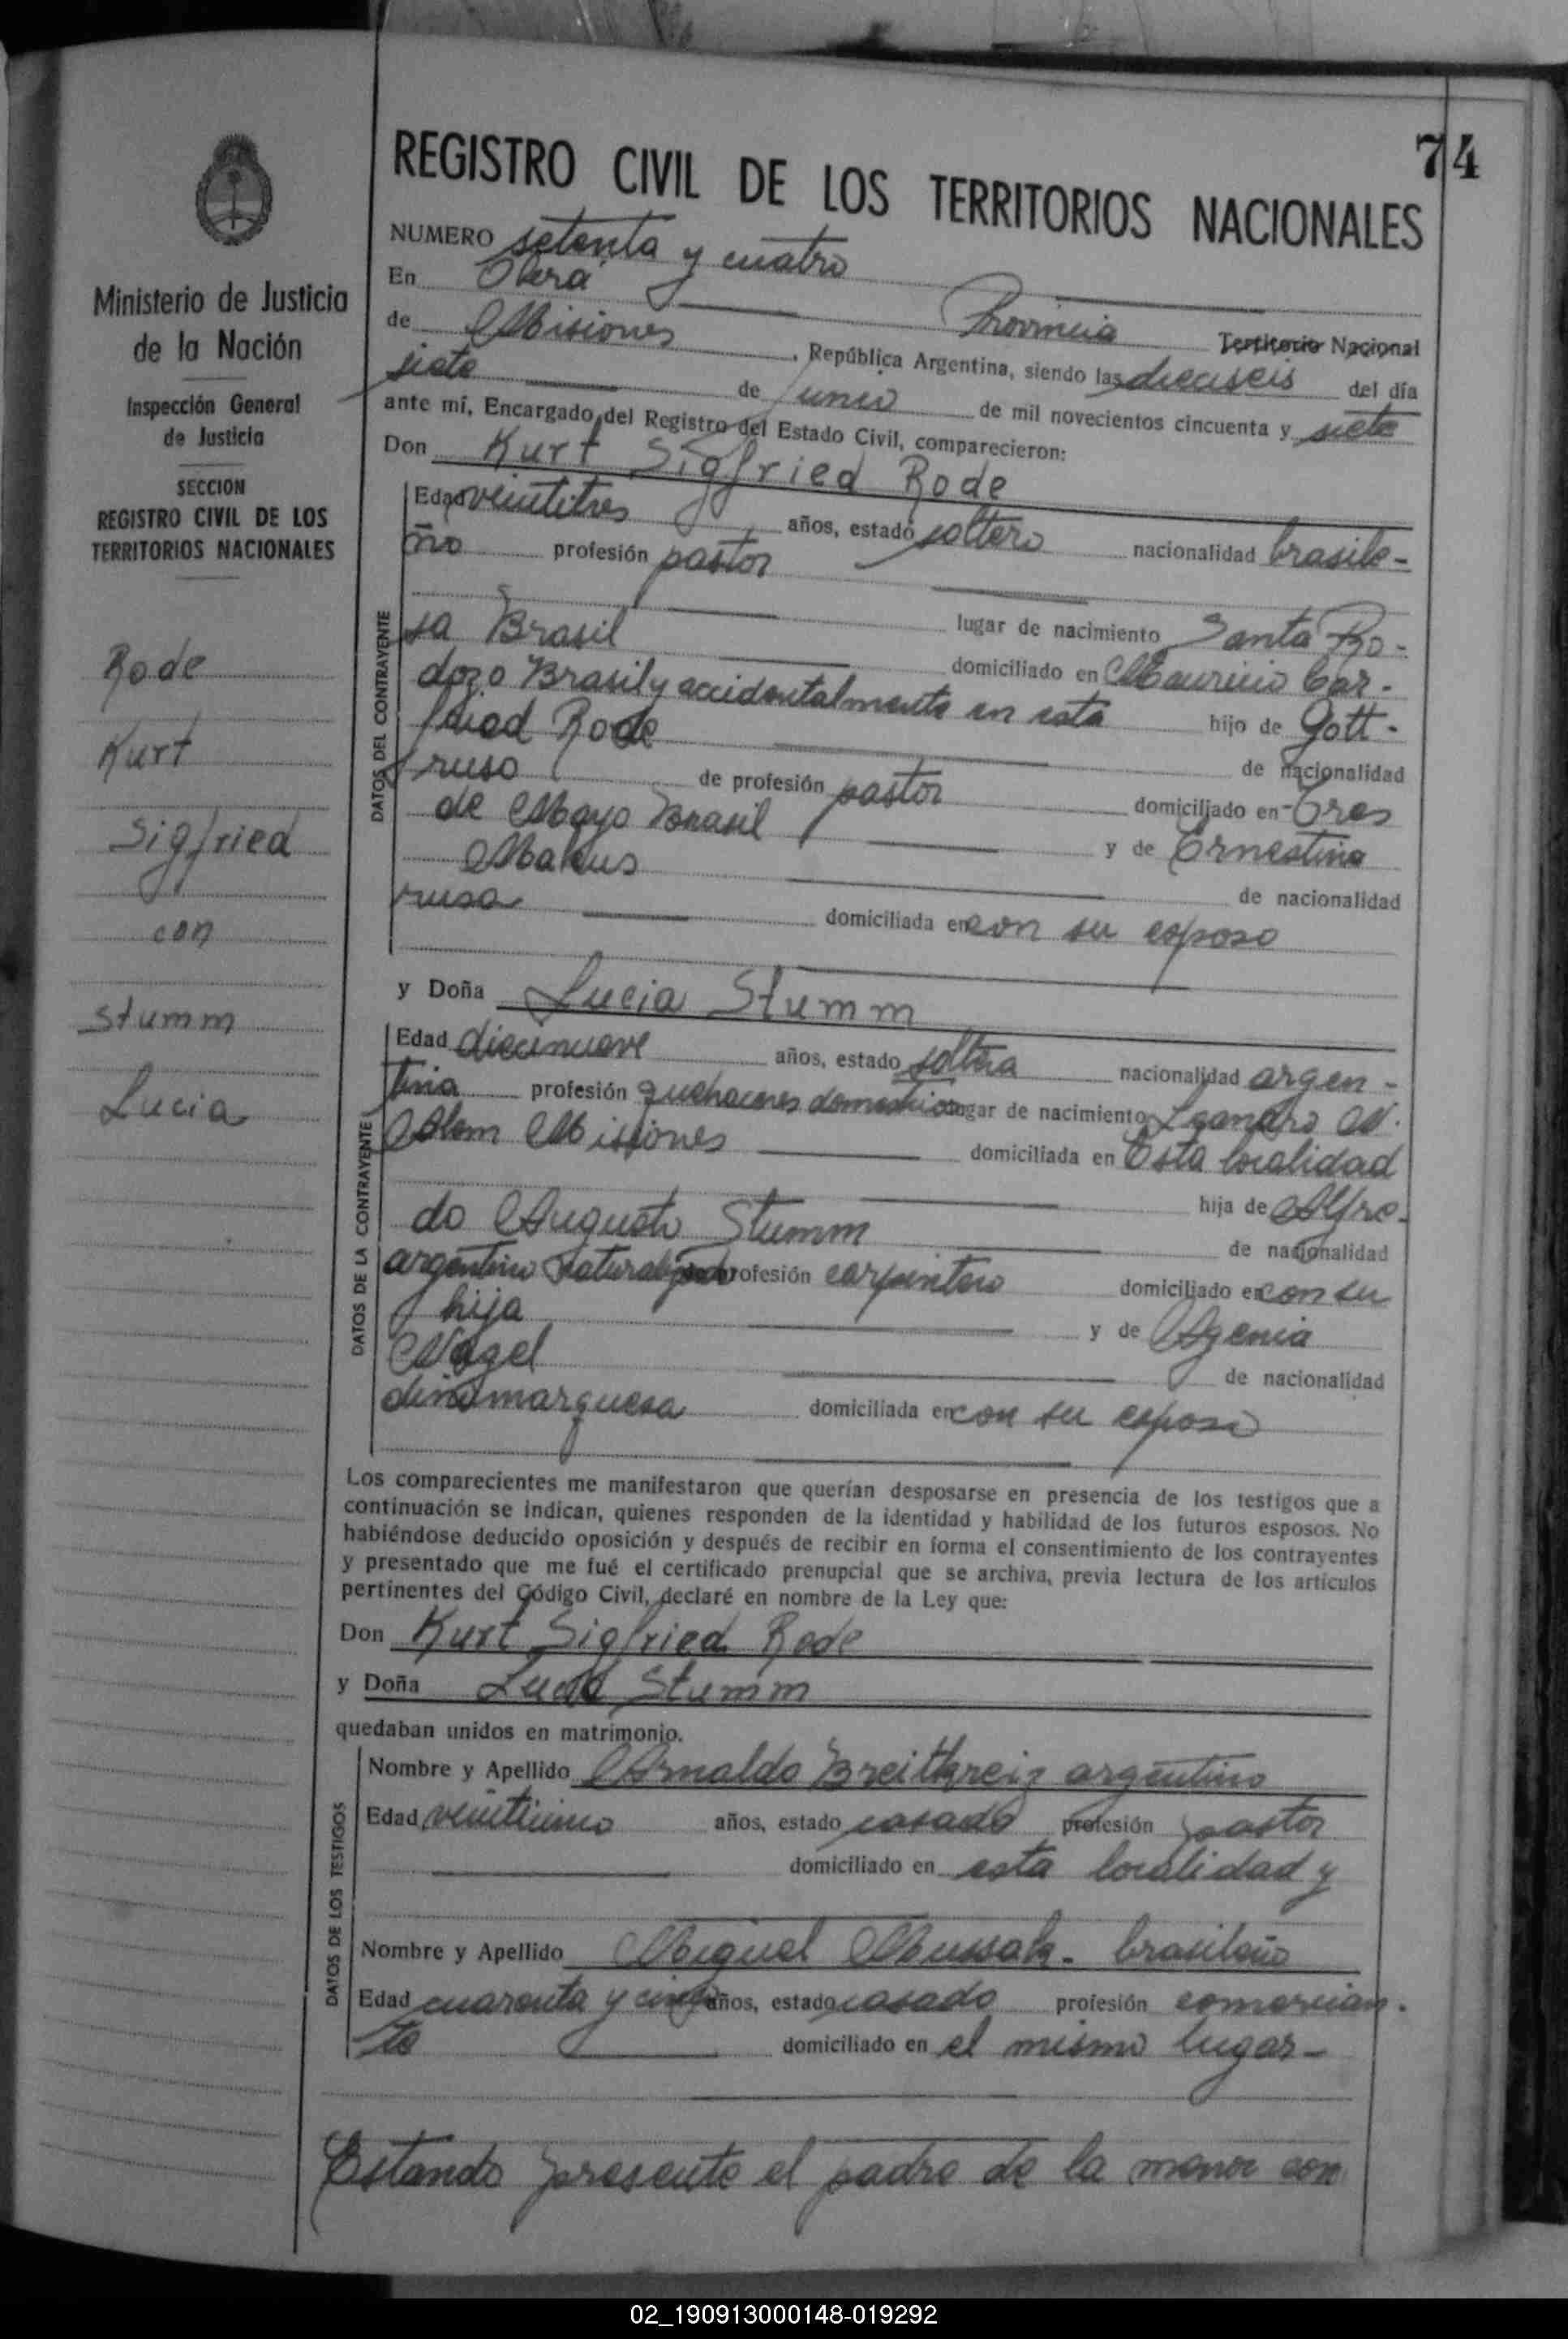 74
REGISTRO CIVIL DE LOS TERRITORIOS NACIONALES
Ministerio de Justicia
de la Nación
Inspección General
de Justicia
SECCION
REGISTRO CIVIL DE LOS
TERRITORIOS NACIONALES
Rode
Kurt
Sigfried
con
Stumm
Lucia
NUMERO setenta y cuatro
En Oberá
de Misiones Provincia Territorio Nacional
, República Argentina, siendo las dieciseis del día
siete de junio de mil novecientos cincuenta y siete
ante mí, Encargado del Registro del Estado Civil, comparecieron:
Don Kurt Sigfried Rode
DATOS DEL CONTRAYENTE
Edad veintitres años, estado soltero nacionalidad brasile-
ño profesión pastor
lugar de nacimiento Santa Ro-
sa Brasil domiciliado en Mauricio Car-
dozo Brasil y accidentalmente en esta hijo de Gott-
fried Rode de nacionalidad
ruso de profesión pastor domiciliado en Tres
de Mayo Brasil y de Ernestina
de nacionalidad
rusa domiciliada en con su esposo
y Doña Lucia Stumm
DATOS DE LA CONTRAYENTE
Edad diecinueve años, estado soltera nacionalidad argen-
tina profesión quehaceres domesticos lugar de nacimiento Leandro N.
Alem Misiones domiciliada en Esta localidad
hija de Alfre-
do Augusto Stumm de nacionalidad
argentino naturalizado profesión carpintero domiciliado en con su
hija y de Agenia
Nagel de nacionalidad
dinamarquesa domiciliada en con su esposo
Los comparecientes me manifestaron que querían desposarse en presencia de los testigos que a
continuación se indican, quienes responden de la identidad y habilidad de los futuros esposos. No
habiéndose deducido oposición y después de recibir en forma el consentimiento de los contrayentes
y presentado que me fué el certificado prenupcial que se archiva, previa lectura de los artículos
pertinentes del Código Civil, declaré en nombre de la Ley que:
Don Kurt Sigfried Rode
y Doña Lucia Stumm
quedaban unidos en matrimonio.
DATOS DE LOS TESTIGOS
Nombre y Apellido Arnaldo Breitkreiz argentino
Edad años, estado casado profesión pastor
domiciliado en esta localidad y
Nombre y Apellido Miguel brasileño
Edad cuarenta y cinco años, estado casado profesión comercian-
te domiciliado en el mismo lugar-
Estando presente el padre de la menor con
02_190913000148-019292